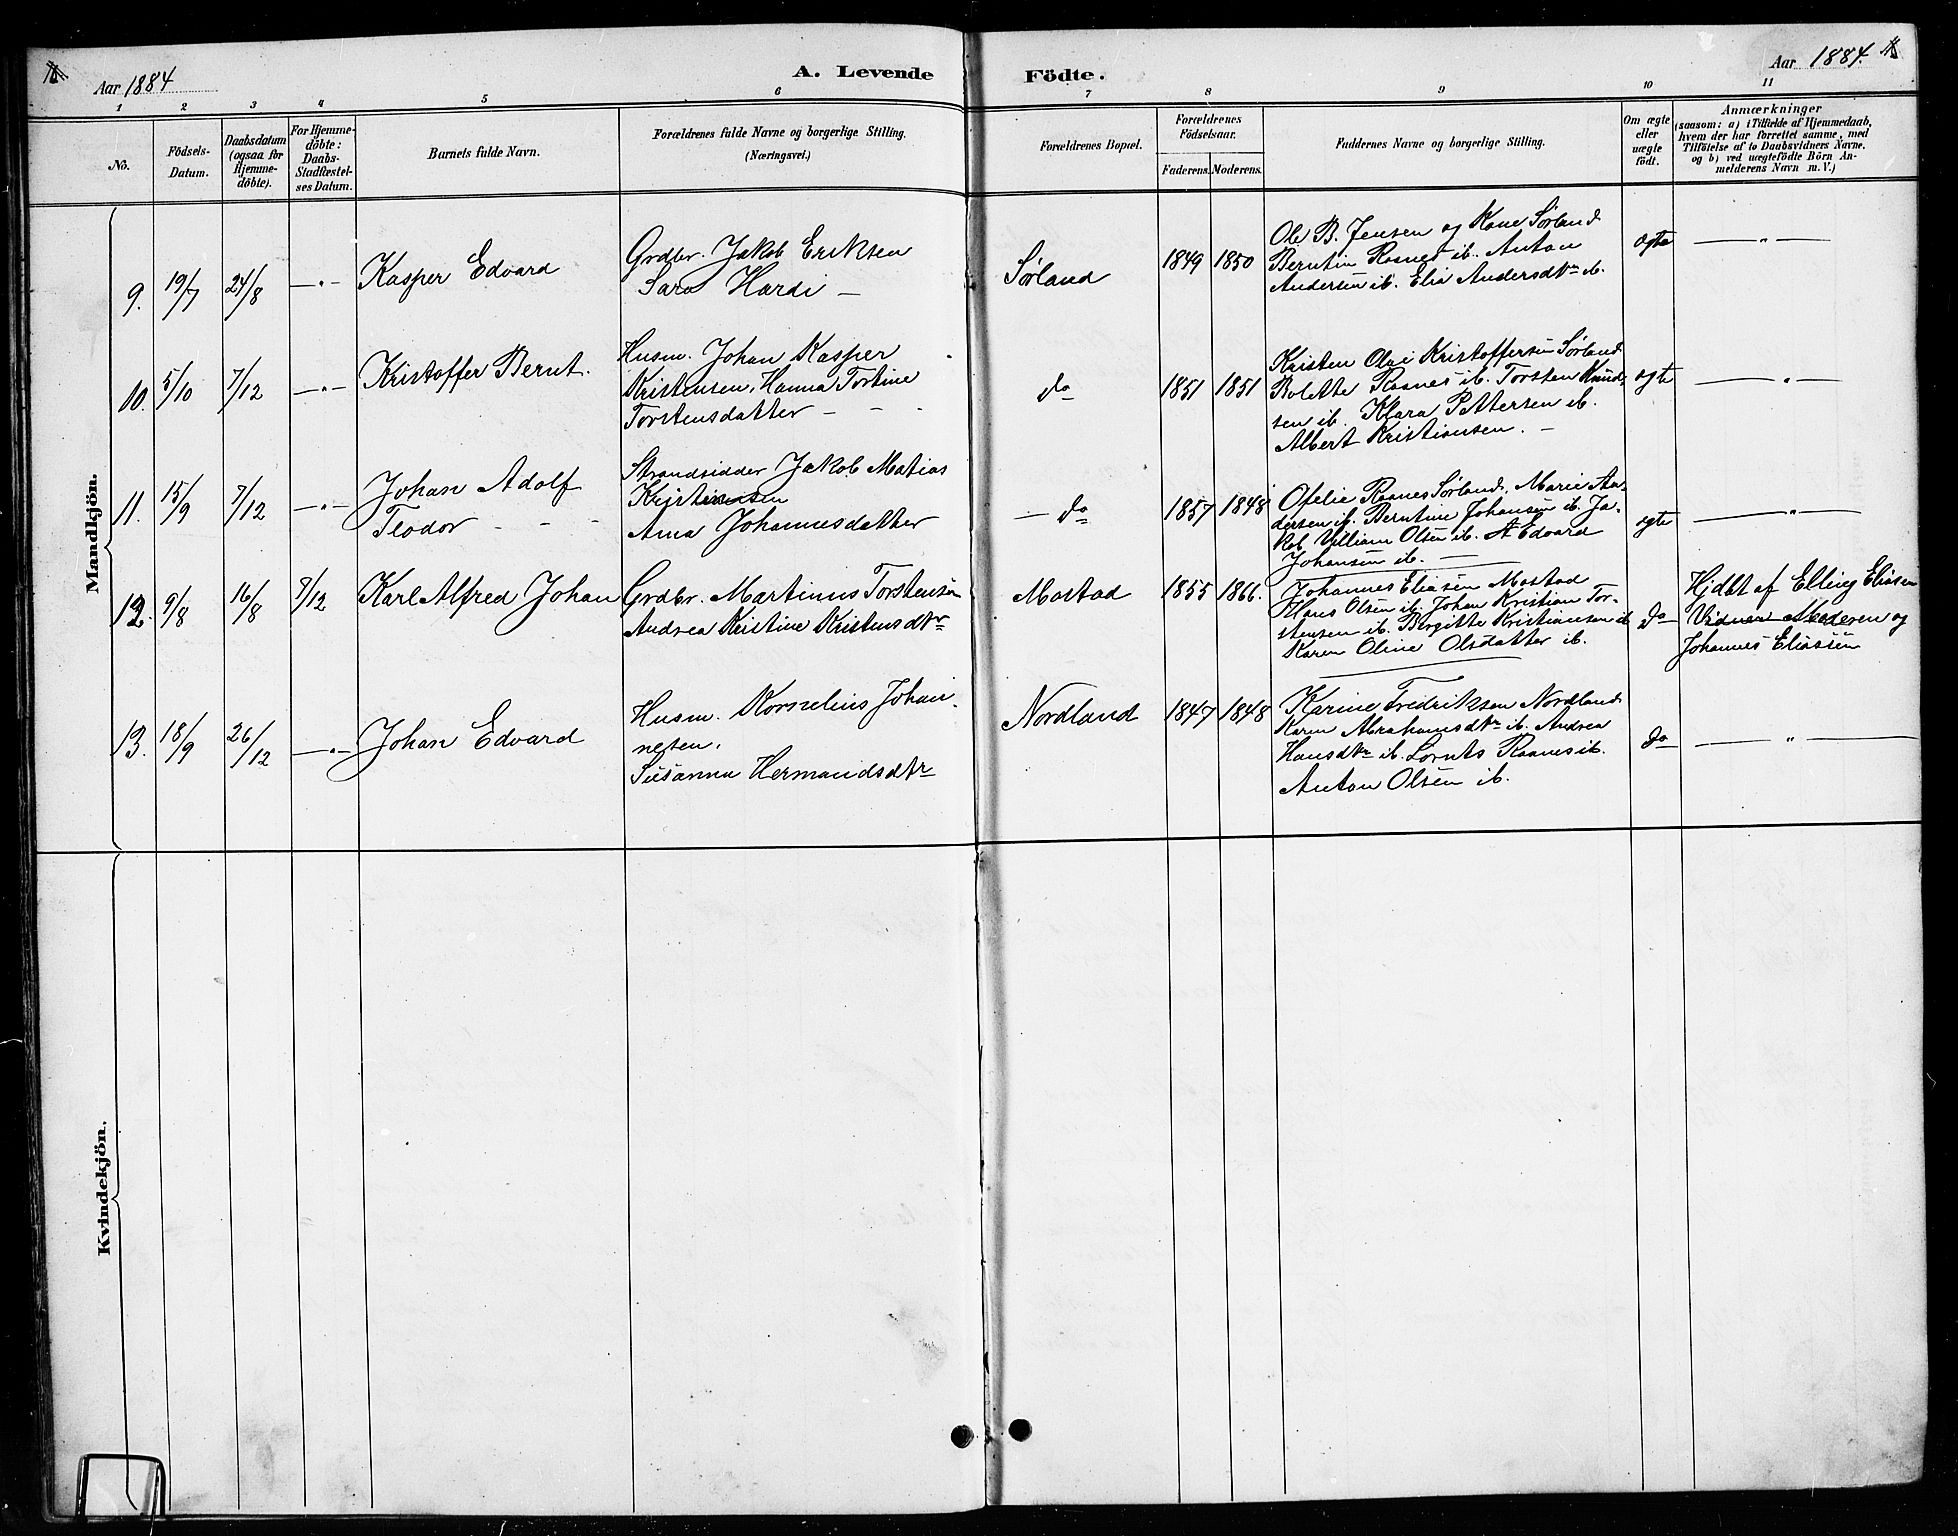 Aar 1884
A. Levende Födte.
Aar 1884.
1 2 3 4 5 6 7 8 9 10 11
Nô.
Födsels-
Datum.
Daabsdatum
(ogsaa for
Hjemme-
döbte).
For Hjemme-
döbte:
Daabs-
Stadfæstel-
ses Datum.
Barnets fulde Navn.
Forældrenes fulde Navne og borgerlige Stilling.
(Næringsvei.)
Forældrenes Bopæl.
Forældrenes
Födselsaar.
Faderens. Moderens.
Faddernes Navne og borgerlige Stilling.
Om ægte
eller
uægte
födt.
Anmærkninger
(saasom: a) i Tilfælde af Hjemmedaab,
hvem der har forrettet samme, med
Tilföielse af to Daabsvidners Navne.
og b) ved uægtefödte Börn An-
melderens Navn m. V.)
Mandkjön.
9. 19/7 24/8 — " — Kasper Edvard
Grdbr. Jakob Eriksen
Sara Hardi —
Sørland 1849 1850
Ole B. Jensen og Kone Sørland
Berntin Rasnes ib. Anton
Andersen ib. Elia Andersdtr ib.
ægte — " —
10. 5/10 7/12 — " — Kristoffer Bernt.
Husm. Johan Kasper
Kristensen, Hanna Tortine
Torstensdatter - - -
do 1851 1851
Kristen Olai Kristoffersen Sørland
Bolette Rasnes ib. Torsten Knud-
sen ib. Klara Pettersen ib.
Albert Kristiansen. —
ægte — " —
11. 15/9 7/12 — " — Johan Adolf
Teodor - - -
Strandsidder Jakob Matias
Kristensen
Ama Johannesdatter
— do 1857 1848
Ofelie Rasnes Sørland, Marie An-
dersen ib. Berntine Johansen ib. Ja-
kob Villiam Olsen ib. Edvard
Johansen ib.
ægte — " —
12. 9/8 16/8 7/12 Karl Alfred Johan
Grdbr. Martinus Torstensen
Andrea Kristine Kristensdtr
Mostad 1855 1866.
Johannes Eliasen Mostad
Hans Olsen ib. Johan Kristian Tor-
stensen ib. Birgitte Kristiansen ib
Karen Oline Olsdatter ib.
do
Hjdbt af Elling Eliasen
Vidner Moderen og
Johannes Eliasen
13. 18/9 26/12 — " — Johan Edvard
Husm. Kornelius Johan-
nesen.
Susanna Hermandsdtr
Nordland 1847 1848
Karine Fredriksen Nordland
Karen Abrahamsdtr ib. Andrea
Hansdtr ib. Lornts Rasnes ib.
Anton Olsen ib.
do — " —
Kvindekjön.